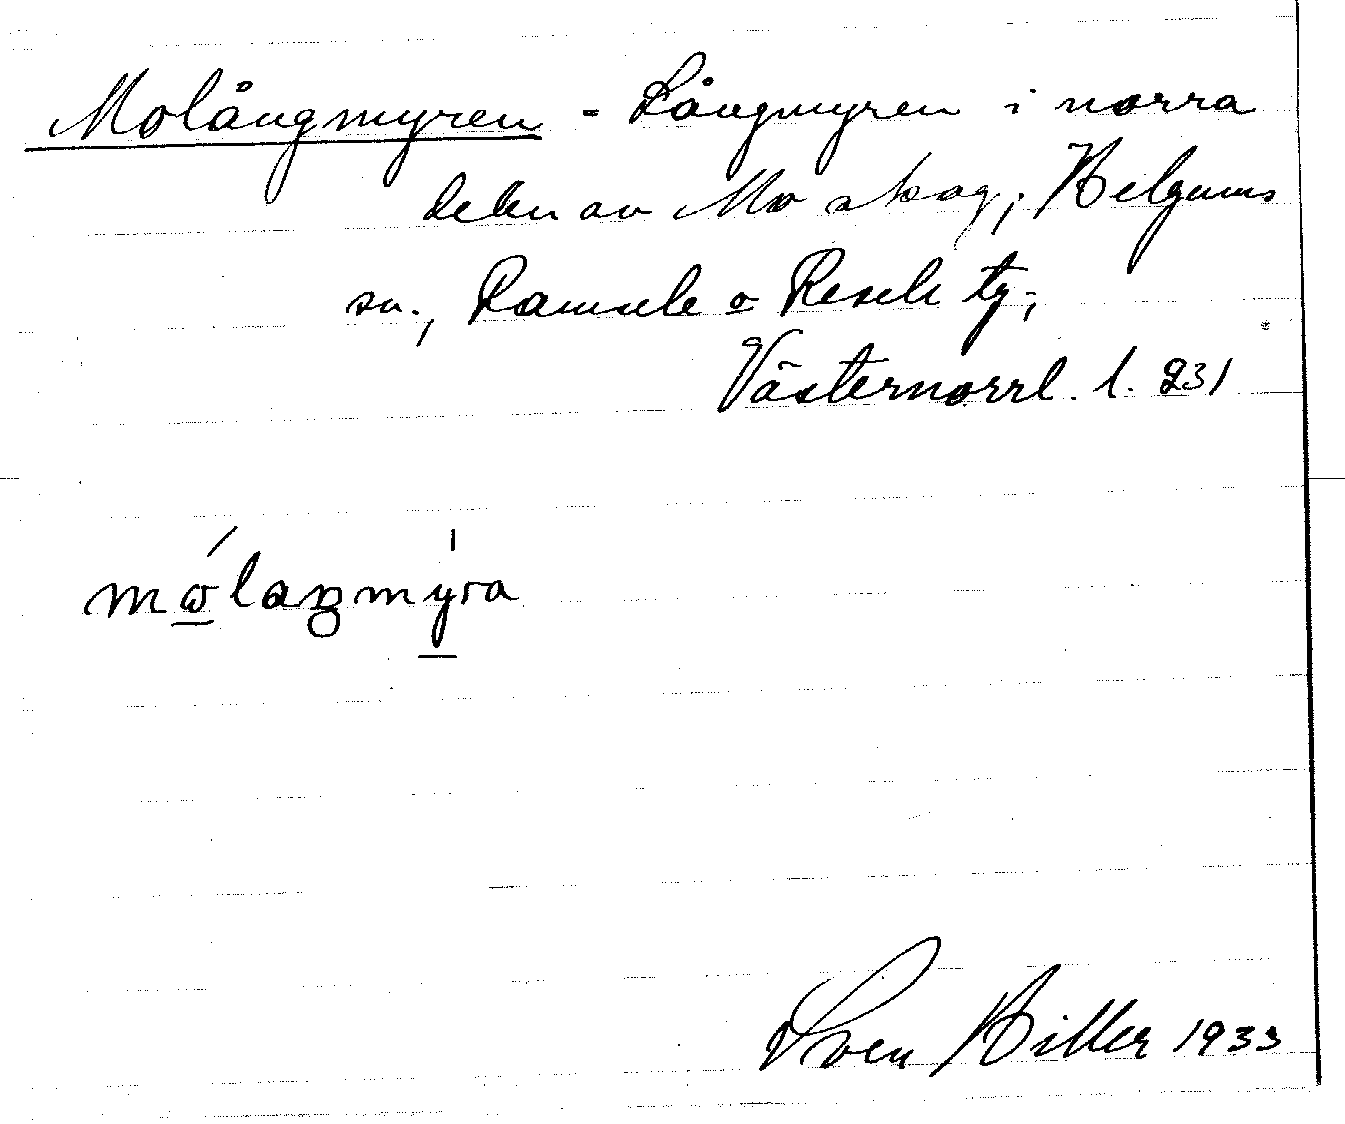 Molångmyren - Långmyren i norra
delen av Mo skog; Helgums
sn., Ramsele o Resele tg;
Västernorrl. l. 231
mo̱laŋmy̱ra
Sven Hiller 1933